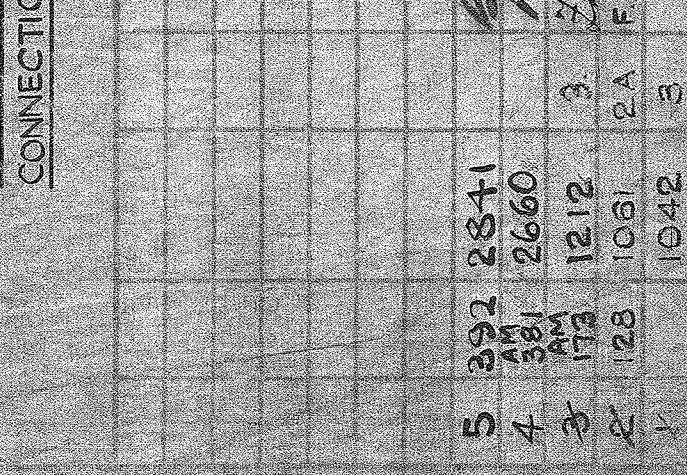 CONNECTIO
5 392 2841
4 AM 381 2660
3 AM 173 1212 3.
2 128 1061 2A F.
1 1042 3